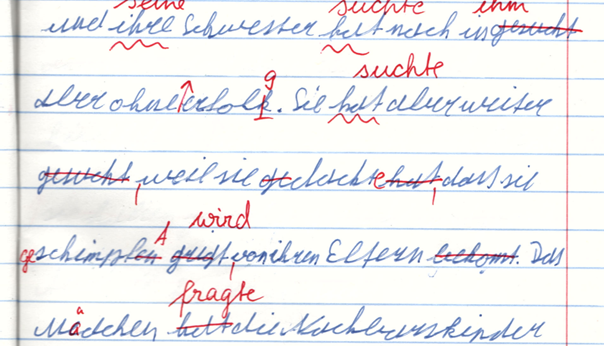 seine suchte ihm
und ihre Schwester hat nach in gesucht
g
suchte
aber ohne erfolk. Sie hat aber weiter
gesucht, weil sie gedachte hat, dass sie
wird
geschimpfen von ihren Eltern bekomt. Das
fragte
Mädchen hat die Nachbarskinder